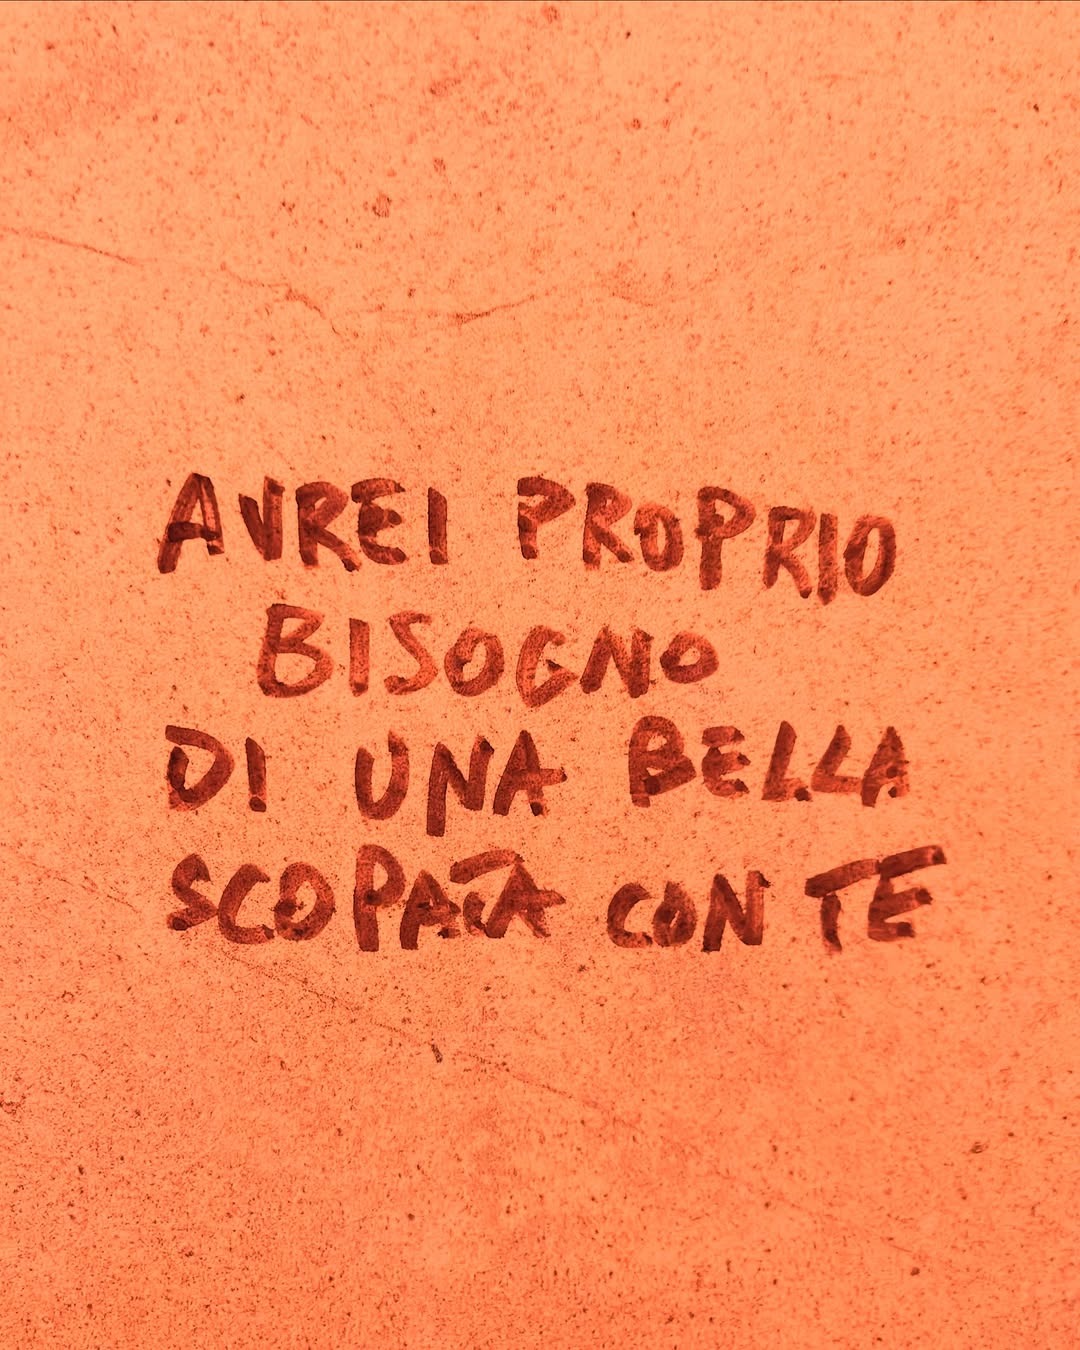 AVREI PROPRIO
BISOGNO
DI UNA BELLA
SCOPATA CON TE